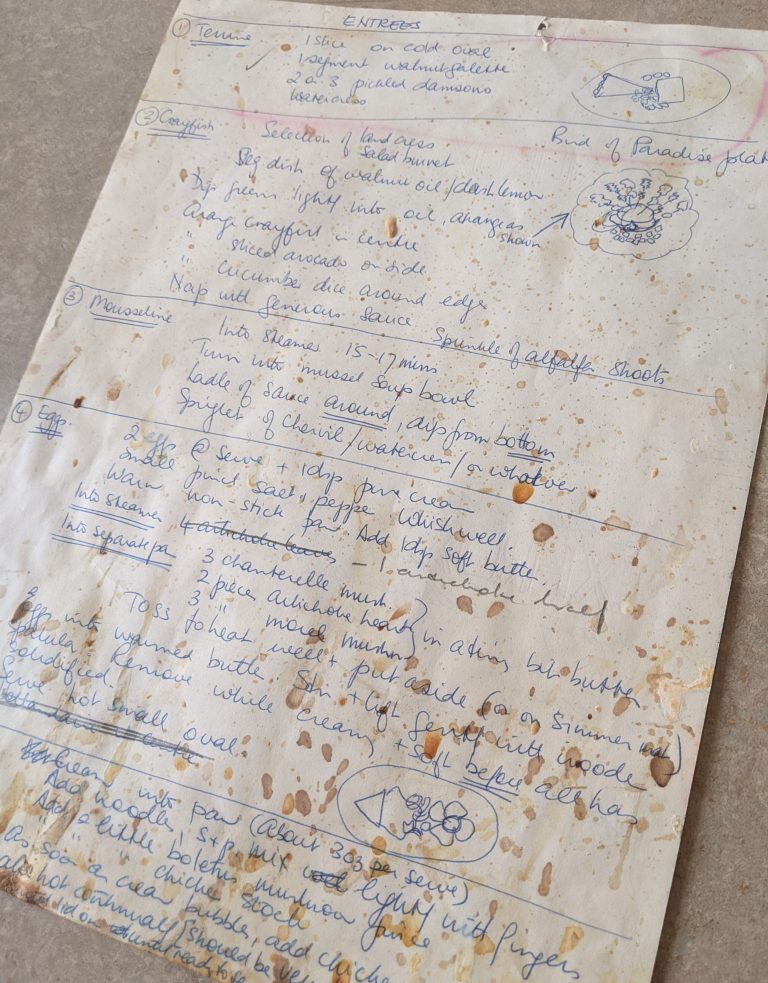 ENTREES
① Terrine
1 slice on cold oval
1 segment walnut galette
2 or 3 pickled damsons
Watercress
② Crayfish
Selection of landcress
Salad burnet
Bird of Paradise plate
Veg dish of walnut oil / dash lemon
Dip greens lightly into oil, arrange as shown
Arrange crayfish in centre
" sliced avocado on side
" cucumber dice around edge
Nap with generous sauce. Sprinkle of alfalfa shoots
③ Mousseline
Into steamer 15-17 mins
Turn into mussel soup bowl
Ladle of sauce around, dip from bottom
Spriglet of chervil / watercress / or whatever
④ Eggs.
2 eggs @ serve + 1 dsp pure cream
Small pinch salt & pepper Whisk well.
Warm non-stick pan. Add 1 dsp soft butter.
Into Steamer 4 artichoke leaves - 1 artichoke leaf
Into separate pan 3 chanterelle mush.
2 pieces artichoke hearts
3 " morel mushrooms
in a tiny bit butter
Toss to heat well + put aside (or on simmer mat)
Eggs into warmed butter. Stir + lift gently with wooden
spatula. Remove while creamy + soft before all has
solidified.
Serve hot small oval.
Cream into pan (About 303 per serve)
Add noodles, S+P, mix lightly with fingers
Add a little boletus mushroom juice
" " " chicken stock
As soon as cream bubbles, add chicke
continually (should be ver
lid on until ready to se